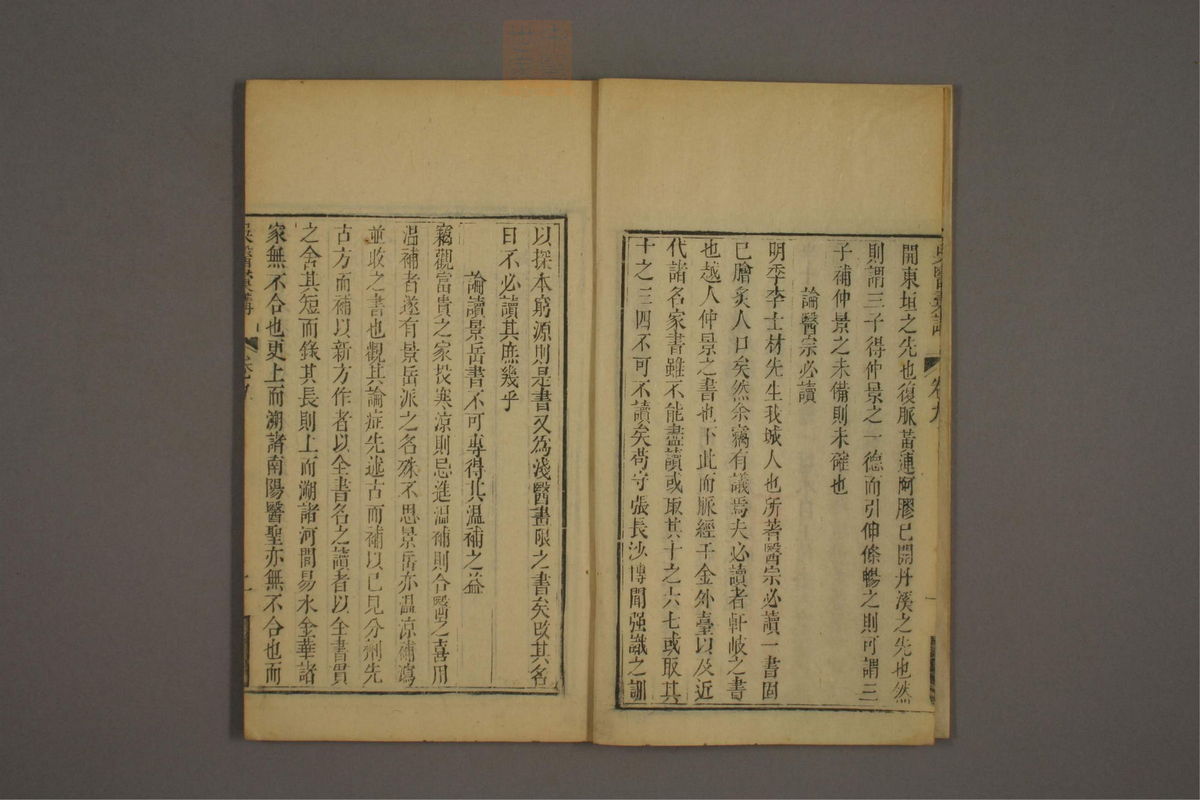 吳醫彙講 卷九 一
開東垣之先也復脈黃連阿膠已開丹溪之先也然
則謂三子得仲景之一德而引伸條暢之則可謂三
子補仲景之未備則未確也
論醫宗必讀
明季李士材先生我城人也所著醫宗必讀一書固
已膾炙人口矣然余竊有議焉夫必讀者軒岐之書
也越人仲景之書也下此而脈經千金外臺以及近
代諸名家書雖不能盡讀或取其十之六七或取其
十之三四不可不讀矣苟守張長沙博聞强識之訓
以探本窮源則是書又為淺醫畫限之書矣改其名
曰不必讀其庶幾乎
論讀景岳書不可專得其溫補之益
竊觀富貴之家投寒涼則忌進溫補則合醫之喜用
溫補者遂有景岳派之名殊不思景岳亦溫涼補瀉
並收之書也觀其論症先述古而補以己見分劑先
古方而補以新方作者以全書名之讀者以全書貫
之舍其短而錄其長則上而溯諸河間易水金華諸
家無不合也更上而溯諸南陽醫聖亦無不合也而
吳醫彙講